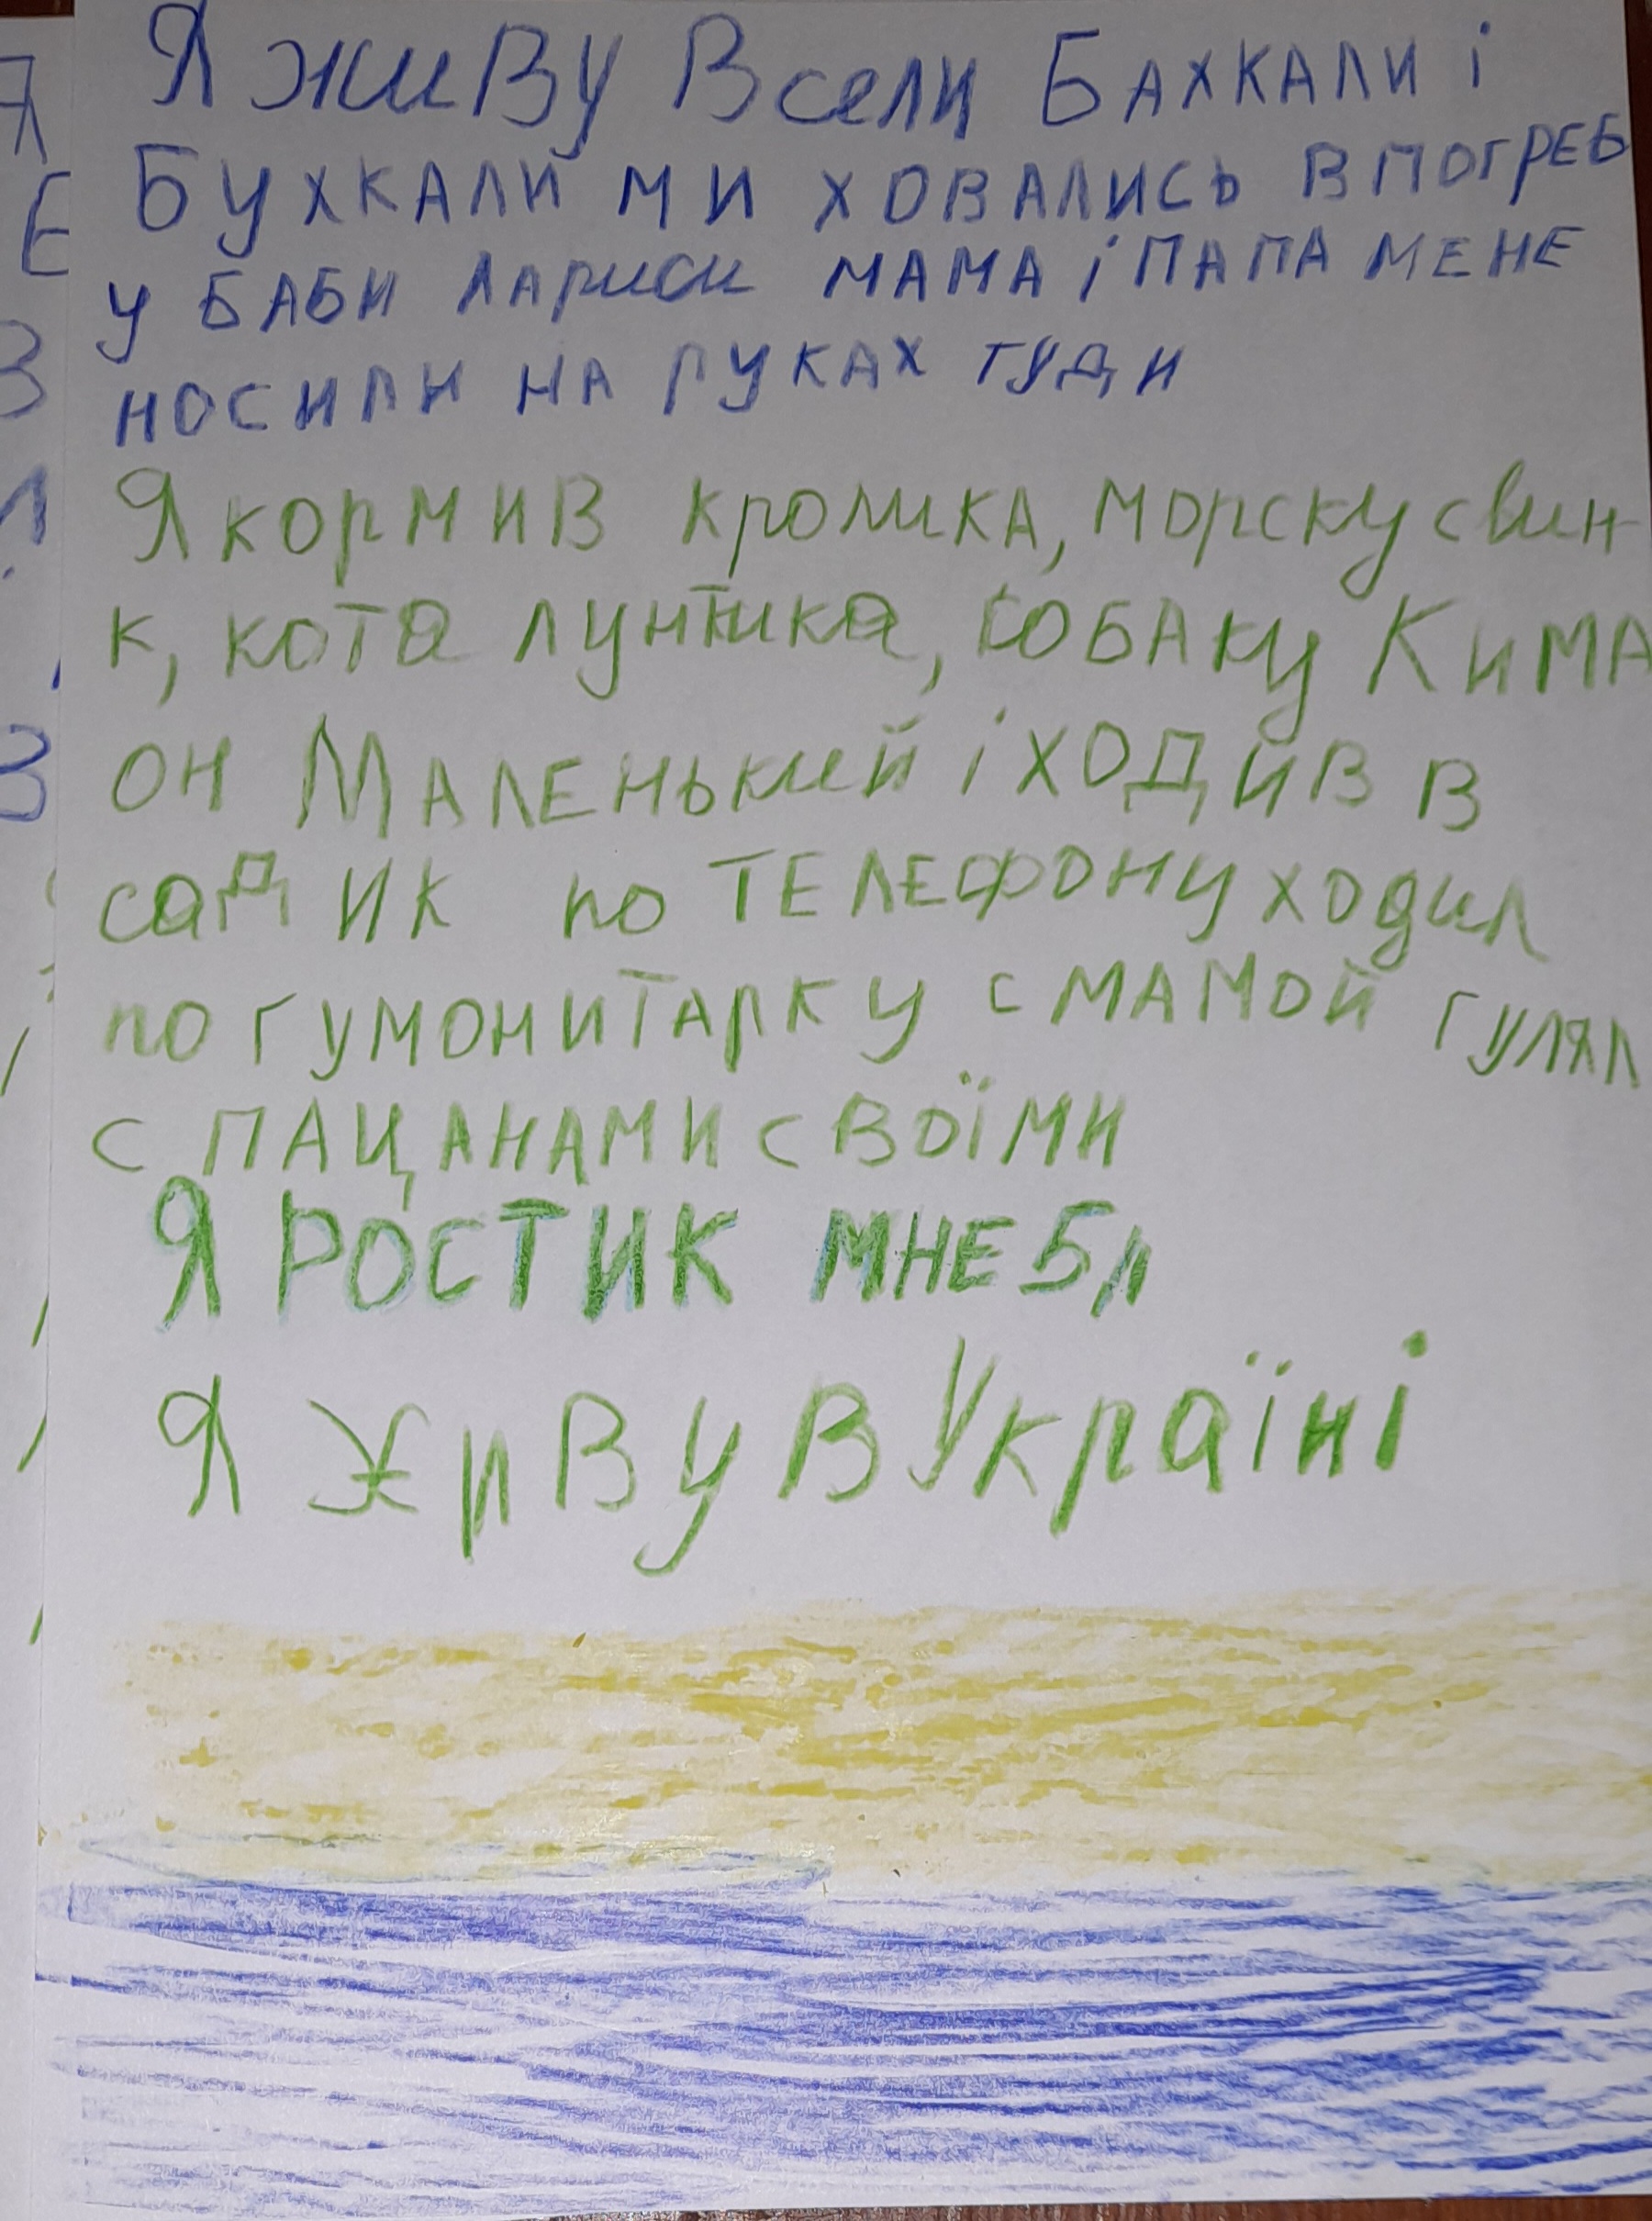 Я живу в сели Бахкали і
Бухкали ми ховались в погреб
у баби Лариси мама і папа мене
носили на руках туди
Я кормив кролика, морску свин-
к, кота лунтика, собаку Кима
он Маленький і ходйв в
садик по телефону ходил
по гумонитарку с мамой гулял
с пацанами своїми
Я Ростик мне 5л
Я живу в Україні